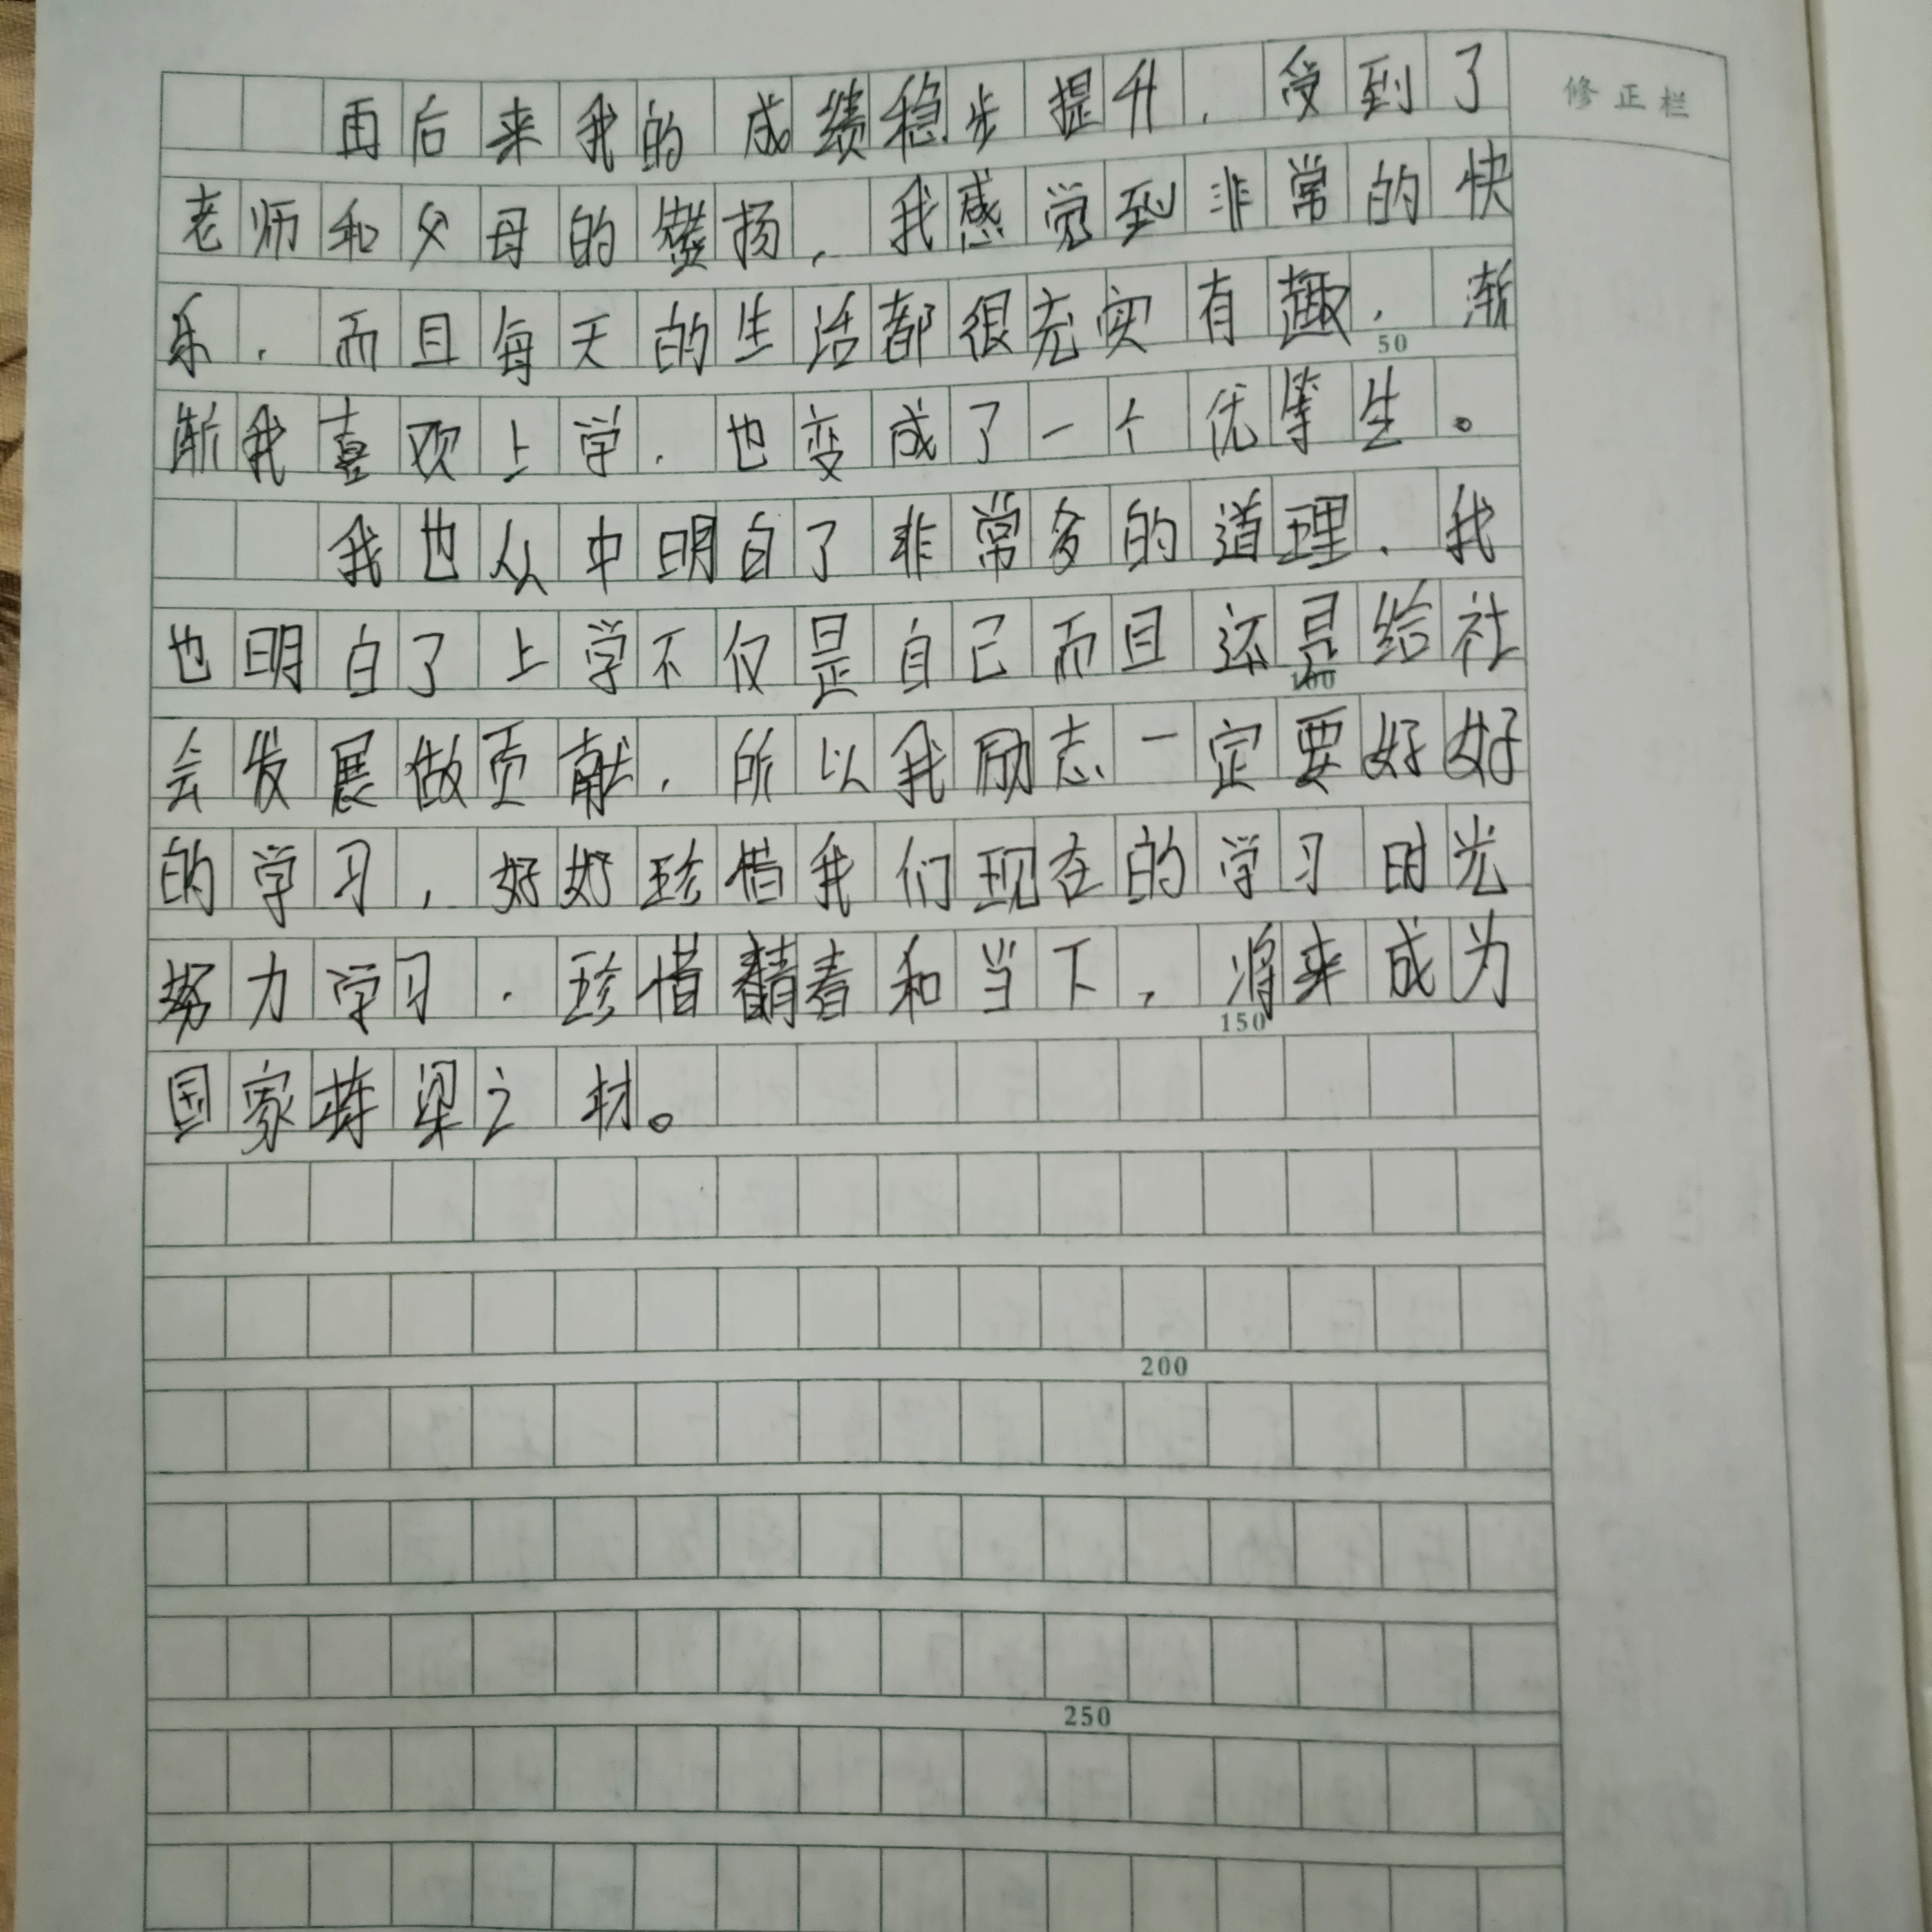 再后来我的成绩稳步提升，受到了
修正栏
老师和父母的赞扬，我感觉到非常的快
乐，而且每天的生活都很充实有趣，渐
50
渐我喜欢上学，也变成了一个优等生。
我也从中明白了非常多的道理，我
也明白了上学不仅是自己而且还是给社
100
会发展做贡献，所以我励志一定要好好
的学习，好好珍惜我们现在的学习时光
努力学习，珍惜青春和当下，将来成为
150
国家栋梁之材。
200
250